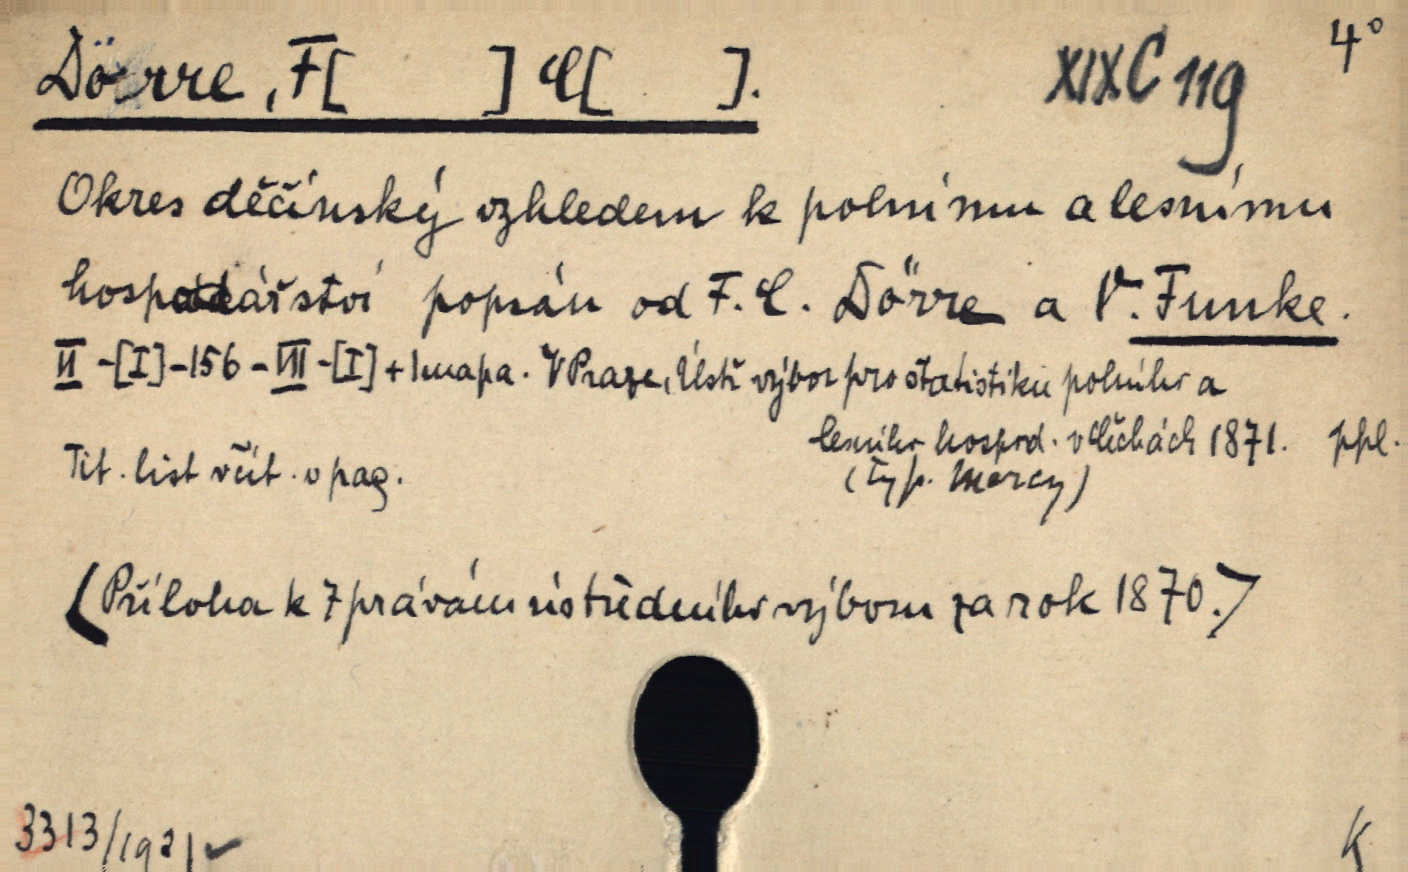 4°
Dörre, F[ ] C[ ].
XIX C 119
Okres děčínský vzhledem k polnímu a lesnímu
hospodářství popsán od F. C. Dörre a V. Funke.
II - [I] - 156 - VIII - [I] + 1 mapa. V Praze, Ústř. výbor pro statistiku polního a
lesního hospod. v Čechách 1871. ppl.
Tit. list včít. v pag.
(Typ. Mercy)
(Příloha k Zprávám ústředního výboru za rok 1870.)
3313/1921
K